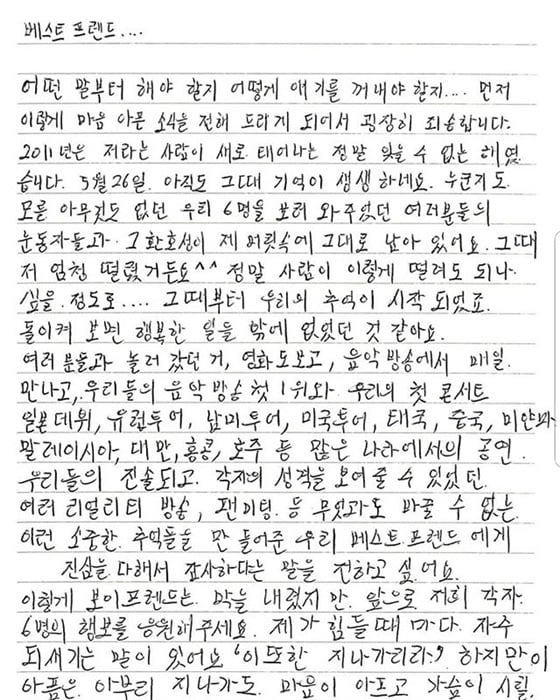 베스트 프렌드....
어떤 말부터 해야 할지 어떻게 얘기를 꺼내야 할지.... 먼저
이렇게 마음 아픈 소식을 전해 드리게 되어서 굉장히 죄송합니다.
2011년은 저라는 사람이 새로 태어나는 정말 잊을 수 없는 해였
습니다. 5월 26일. 아직도 그때 기억이 생생 하네요. 누군지도
모를 아무것도 없던 우리 6명을 보러 와주었던 여러분들의
눈동자들과. 그 환호성이 제 머릿속에 그대로 남아 있어요. 그때
저 엄청 떨렸거든요^^ 정말 사람이 이렇게 떨려도 되나
싶을 정도로.... 그때부터 우리의 추억이 시작 되었죠.
돌이켜 보면 행복한 일들 밖에 없었던 것 같아요.
여러분들과 놀러 갔던 거, 영화도보고, 음악방송에서 매일.
만나고, 우리들의 음악방송 첫 1위와 우리의 첫 콘서트
일본데뷔, 유럽투어, 남미투어, 미국투어, 태국, 중국, 미얀마
말레이시아, 대만, 홍콩, 호주 등 많은 나라에서의 공연.
우리들의 진솔되고. 각자의 성격을 보여 줄 수 있었던
여러 리얼리티 방송, 팬미팅. 등 무엇과도 바꿀 수 없는
이런 소중한. 추억들을 만들어준 우리 베스트프렌드에게
진심을 다해서 감사하다는 말을 전하고 싶어요.
이렇게 보이프렌드는. 막을 내렸지만. 앞으로 저희 각자.
6명의 행보를 응원해주세요. 제가 힘들때 마다. 자주
되새기는 말이 있어요 "이또한 지나가리라." 하지만 이
아픔은. 아무리 지나가도. 마음이 아프고 가슴이 시릴.